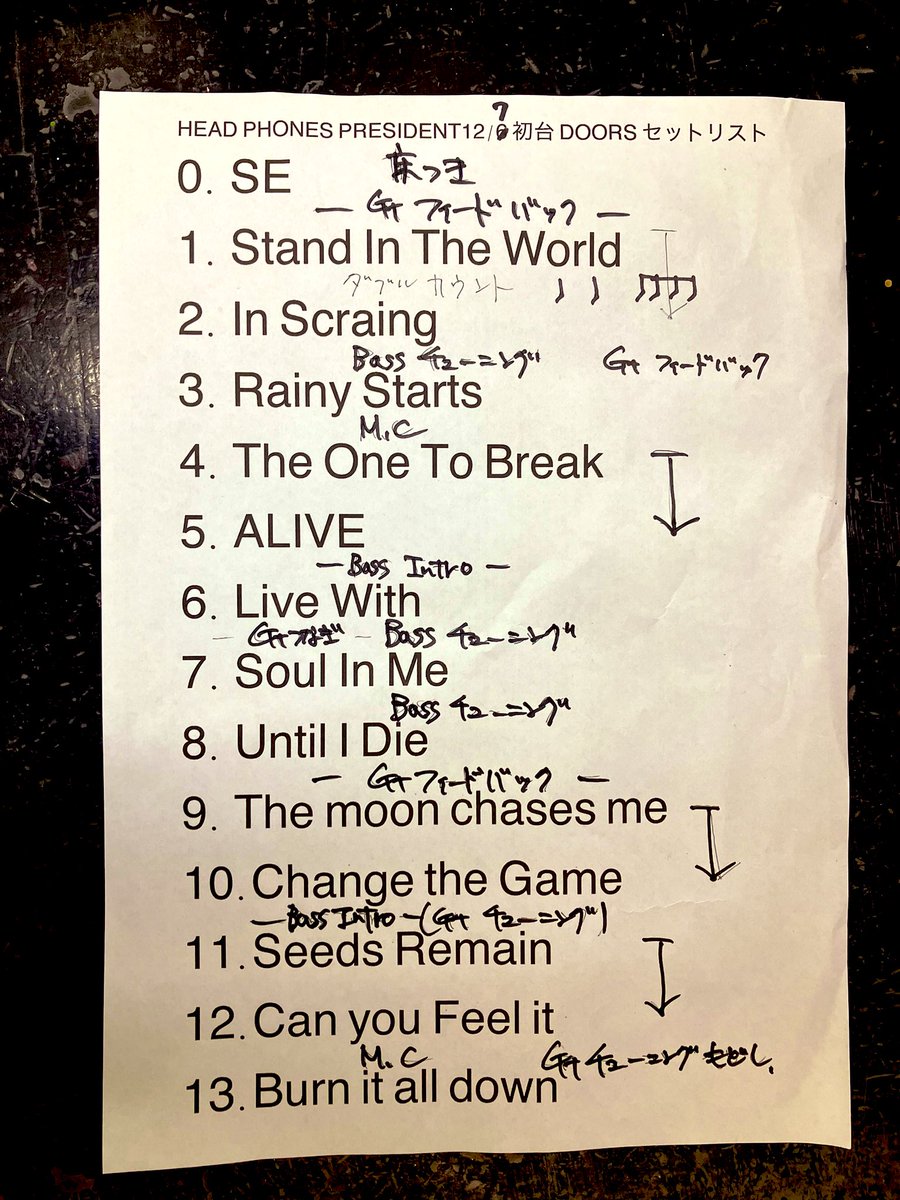 HEAD PHONES PRESIDENT12/7 初台 DOORS セットリスト
0. SE 床つき
— Gt フィードバック —
1. Stand In The World
ダブル カウント
2. In Scraing
Bass チューニング Gt フィードバック
3. Rainy Starts
M.C
4. The One To Break
5. ALIVE
— Bass Intro —
6. Live With
— Gt つなぎ — Bass チューニング
7. Soul In Me
Bass チューニング
8. Until I Die
— Gt フィードバック —
9. The moon chases me
10. Change the Game
— Bass Intro — (Gt チューニング)
11. Seeds Remain
12. Can you Feel it
M.C Gt チューニングもどし、
13. Burn it all down